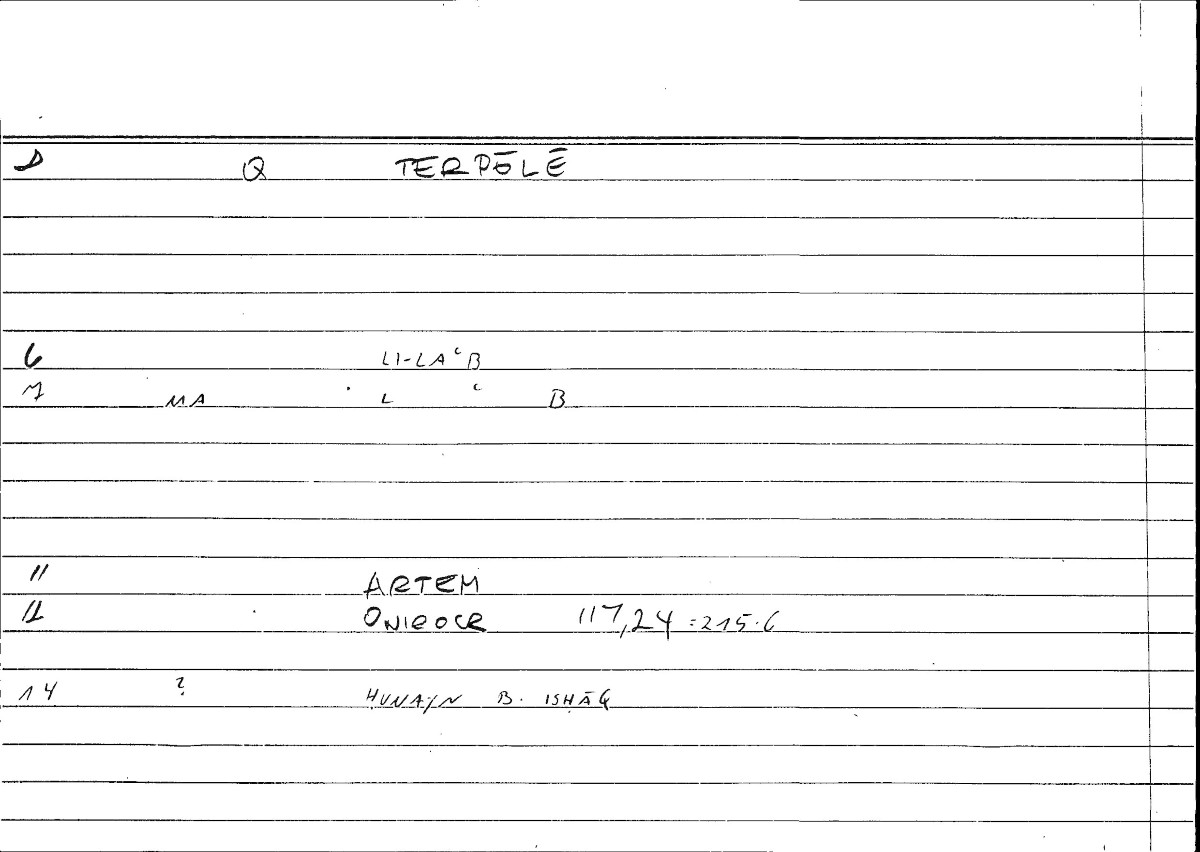 Q TERPŌLĒ
6 LI-LAʿB
7 MA L ʿ B
11 ARTEM
12 ONIROCR 117,24 = 215.6
14 ? ḤUNAYN B. ISḤĀQ